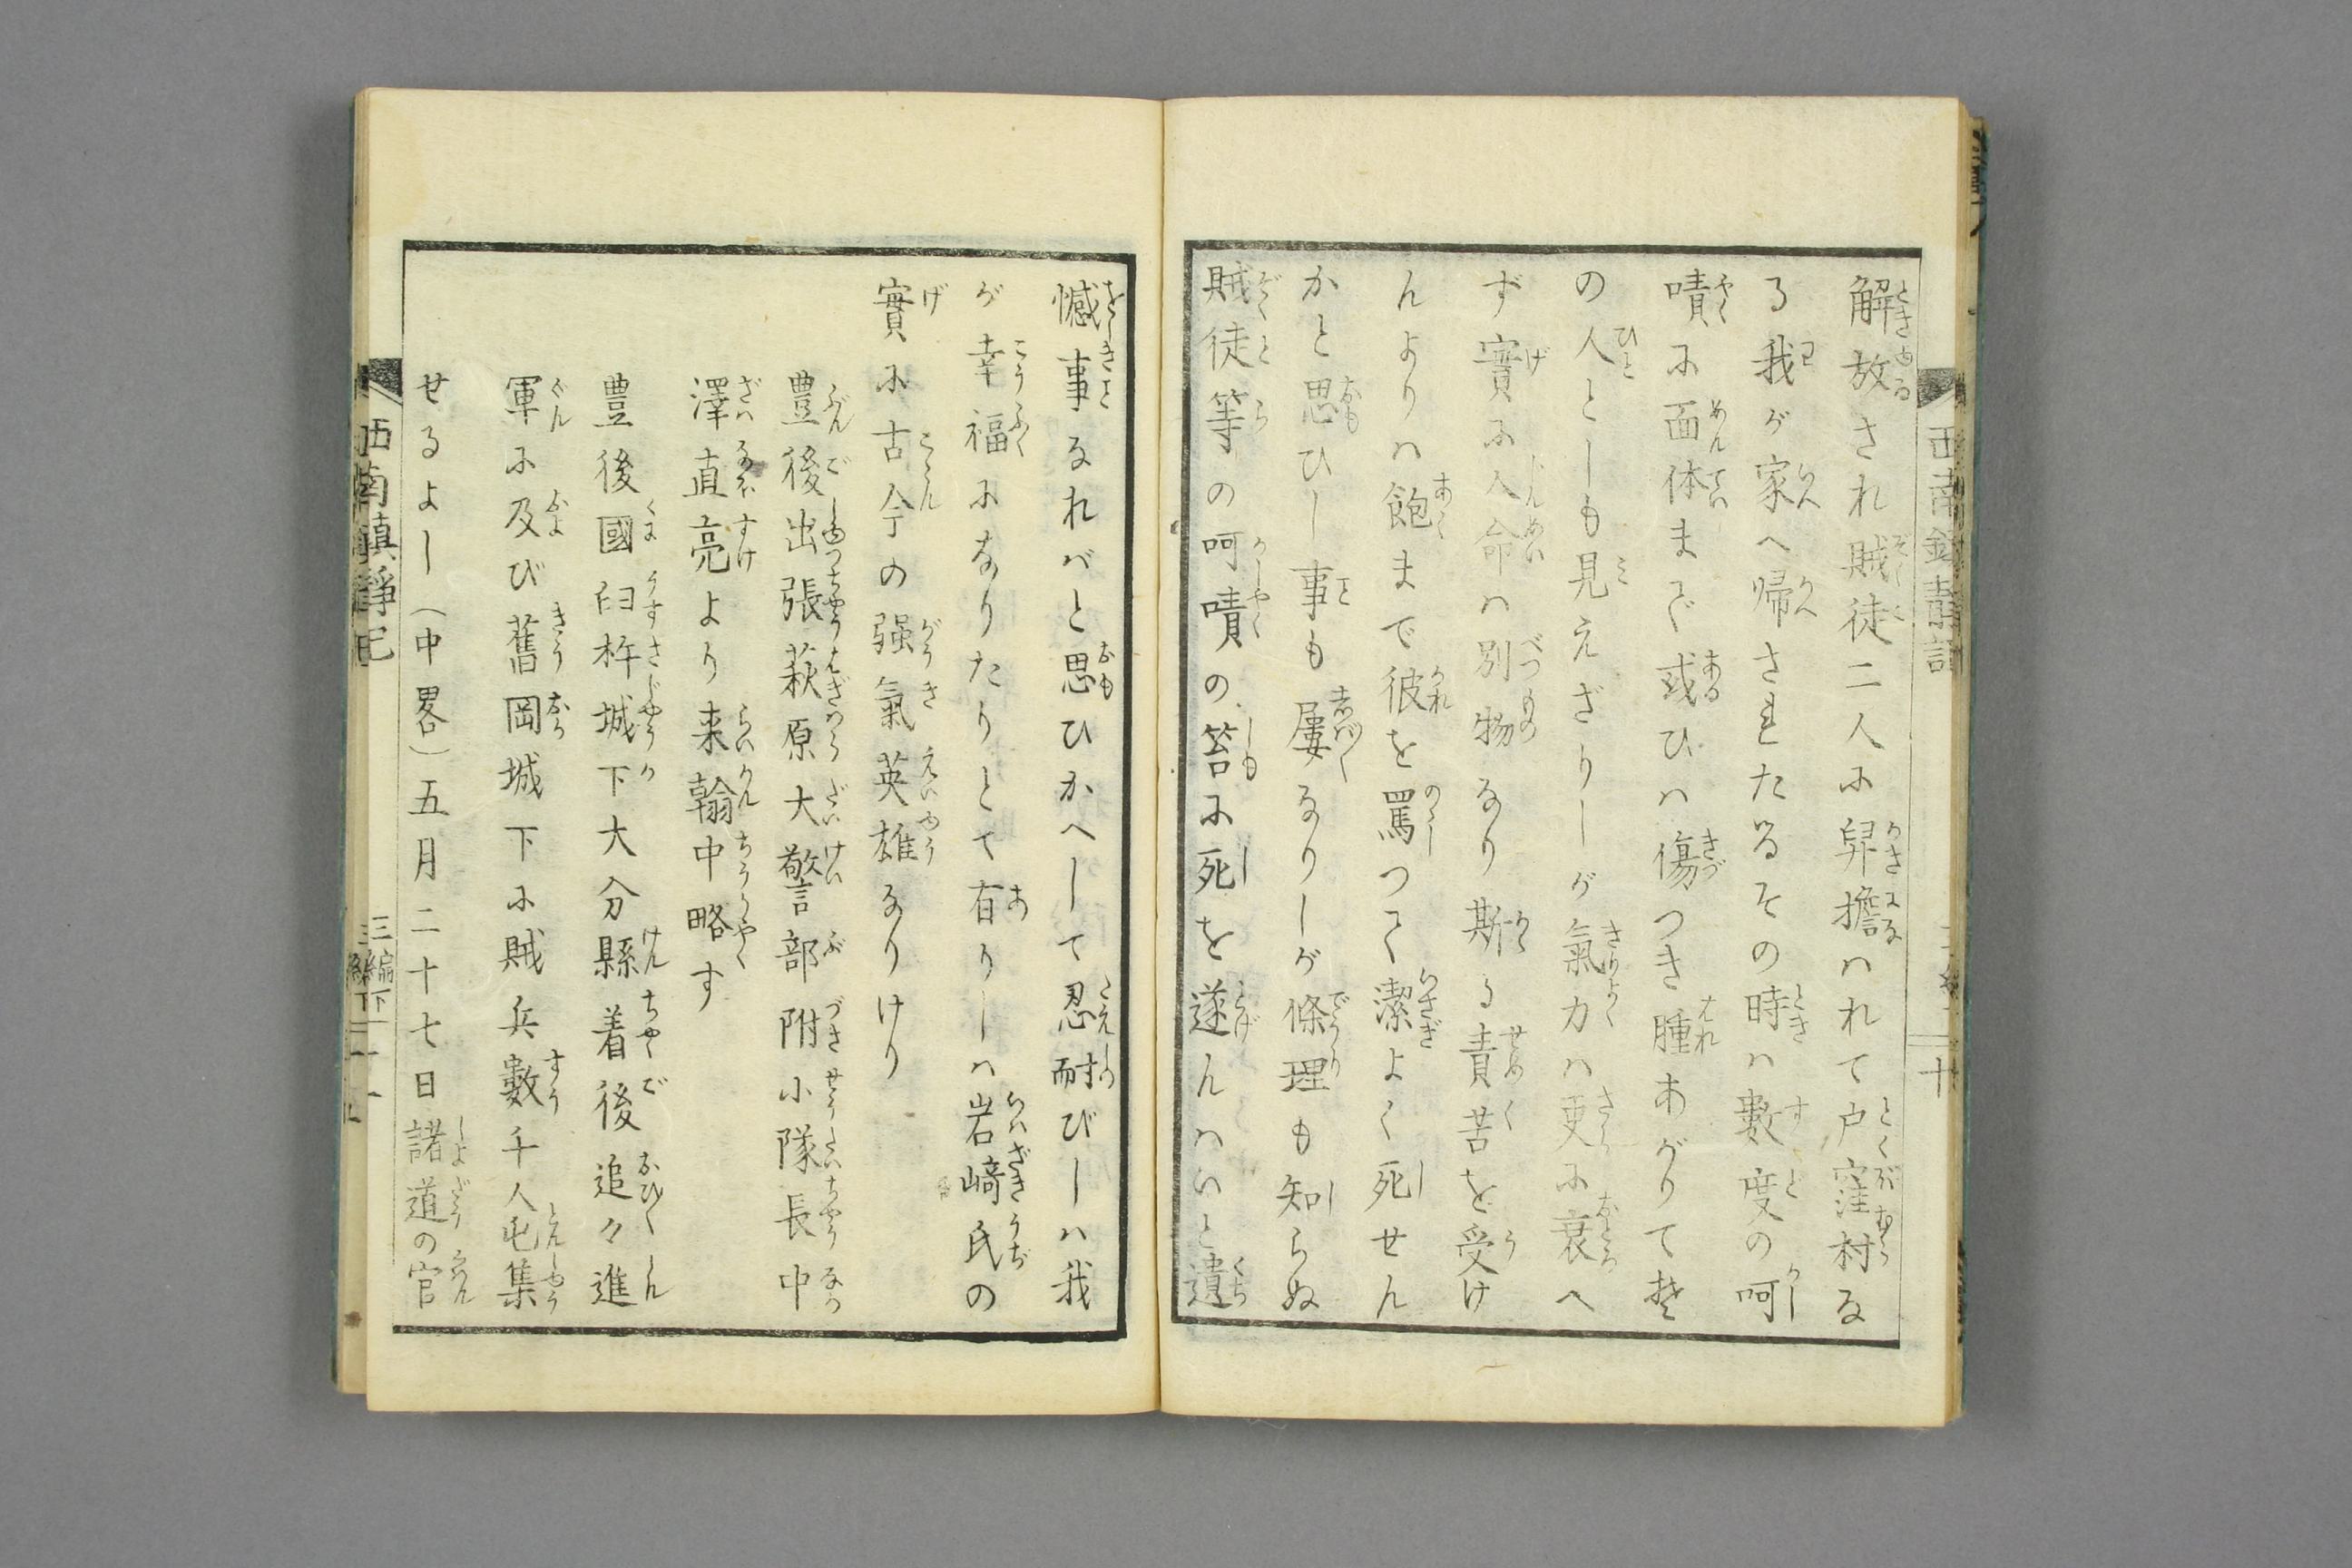 解放され賊徒二人に舁擔はれて戸窪村な
る我が家へ帰されたるその時は數度の呵
嘖に面体まで或ひは傷つき腫あがりて埜
の人としも見えざりしが氣力は更に衰へ
ず實に人命は別物なり斯る責苦を受け
んよりは飽まで彼を罵つて潔よく死せん
かと思ひし事も屢なりしが條理も知らぬ
賊徒等の呵嘖の笞に死を遂んはいと遺
憾事なれバと思ひかへして忍耐びしハ我
が幸福になりたりとて有りしハ岩﨑氏の
實に古今の强氣英雄なりけり
豊後出張萩原大警部附小隊長中
澤直亮より来翰中略す
豊後國臼杵城下大分縣着後追々進
軍に及び舊岡城下に賊兵數千人屯集
せるよし（中畧）五月二十七日諸道の官
西南鎮靜記
三編下